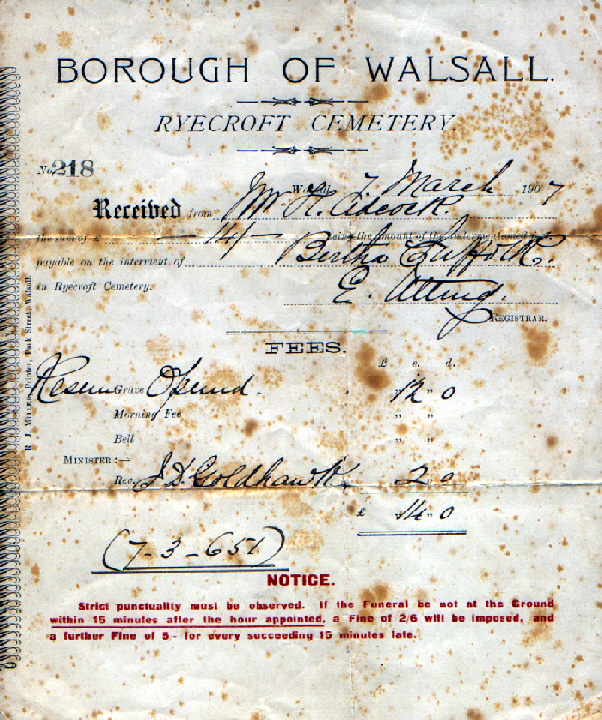 BOROUGH OF WALSALL.
RYECROFT CEMETERY.
No. 218
7 March 1907
Received from Mr H. Adcock.
the sum of £ — 14 — being the amount of the
payable on the interment of Bertha Suffolk.
in Ryecroft Cemetery. E. Attwig.
REGISTRAR.
FEES.
£ s. d.
Grave Opened. 12 " 0
Morning Fee " "
Bell " "
MINISTER:—
Rev. J. D. Goldhawk 2 0
£ 14 - 0
(7-3-651)
NOTICE.
Strict punctuality must be observed. If the Funeral be not at the Ground
within 15 minutes after the hour appointed, a Fine of 2/6 will be imposed, and
a further Fine of 5/- for every succeeding 15 minutes late.
Printer, Park Street, Walsall.